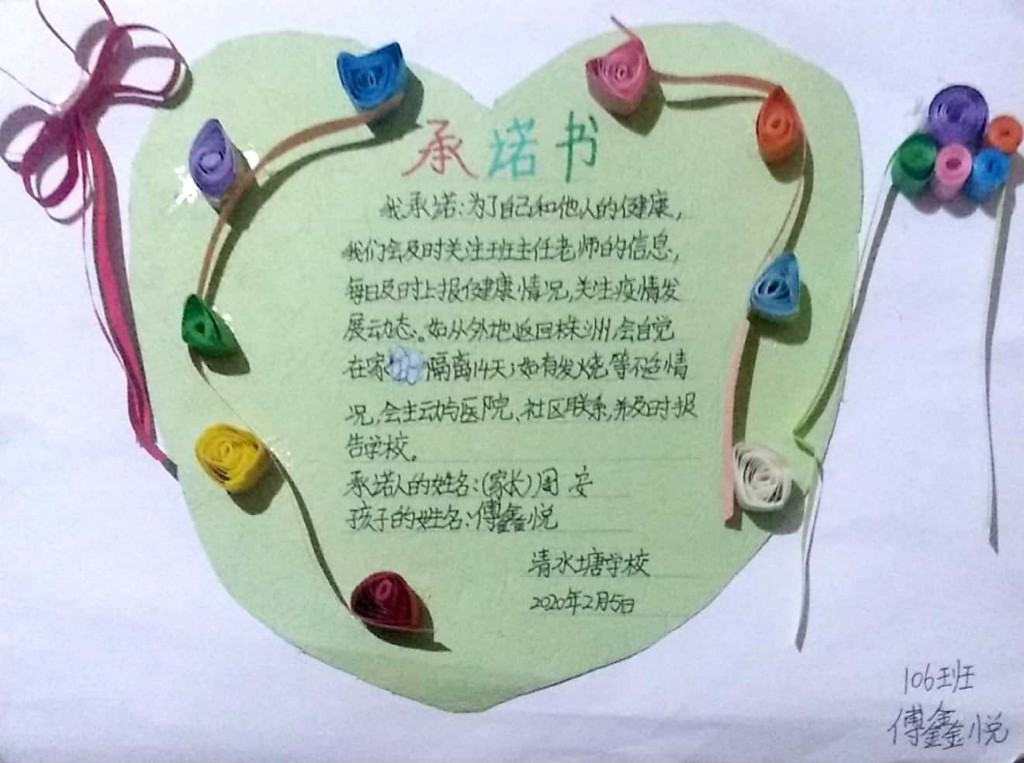 承诺书
我承诺:为了自己和他人的健康,
我们会及时关注班主任老师的信息,
每日及时上报健康情况,关注疫情发
展动态。如从外地返回株洲,会自觉
在家隔离14天;如有发烧等不适情
况,会主动与医院、社区联系,并及时报
告学校。
承诺人的姓名:(家长)周安
孩子的姓名:傅鑫悦
清水塘学校
2020年2月5日
106班
傅鑫悦